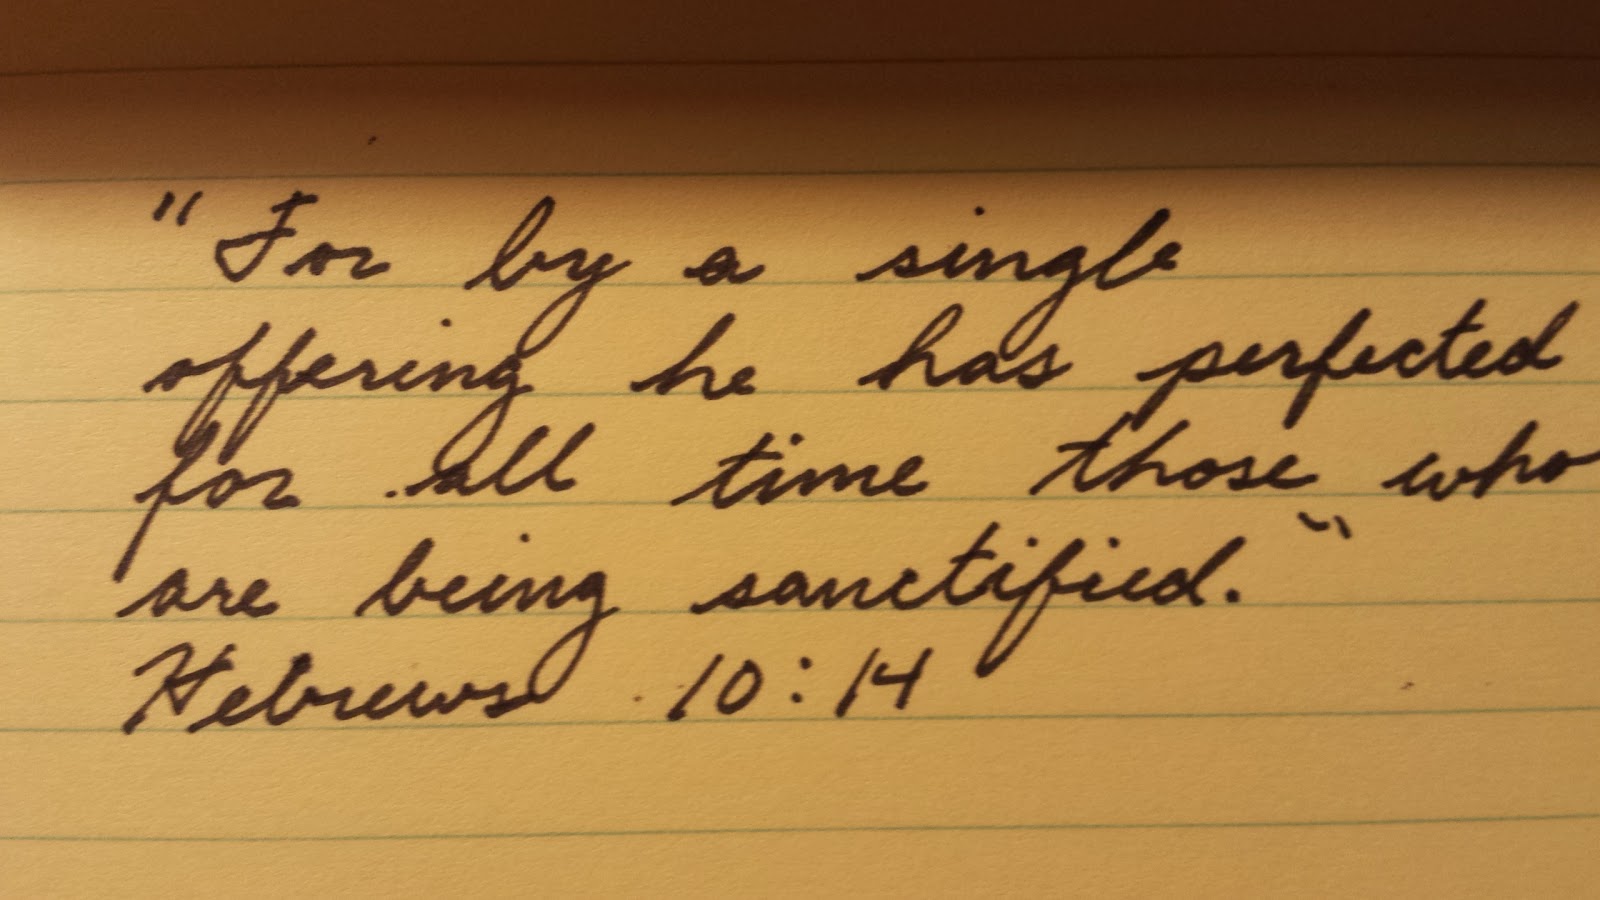 "For by a single
offering he has perfected
for all time those who
are being sanctified."
Hebrews 10:14